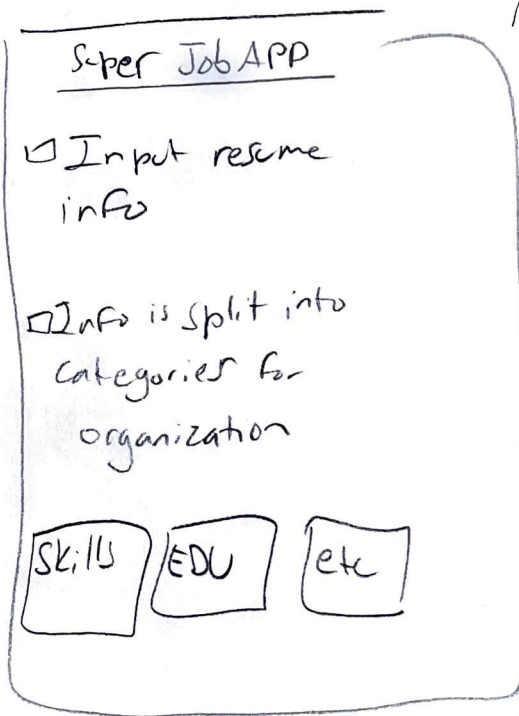 Super Job APP
Input resume
info
Info is split into
categories for
organization
Skills EDU etc